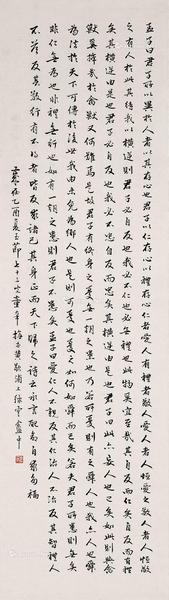 孟子曰君子所以異於人者以其存心也君子以仁存心以禮存心仁者愛人有禮者敬人愛人者人恆愛之敬人者人恆敬
之有人於此其待我以橫逆則君子必自反也我必不仁也必無禮也此物奚宜至哉其自反而仁矣自反而有禮
矣其橫逆由是也君子必自反也我必不忠自反而忠矣其橫逆由是也君子曰此亦妄人也已矣如此則與禽
獸奚擇哉於禽獸又何難焉是故君子有終身之憂無一朝之患也乃若所憂則有之舜人也我亦人也舜
為法於天下可傳於後世我由未免為鄉人也是則可憂也憂之如何如舜而已矣若夫君子所患則亡矣
非仁無為也非禮無行也如有一朝之患則君子不患矣愛人不親反其仁治人不治反其智禮人
不答反其敬行有不得者皆反求諸己其身正而天下歸之詩云永言配命自求多福
歲在乙酉夏至節黃歇浦上綠雲盦中